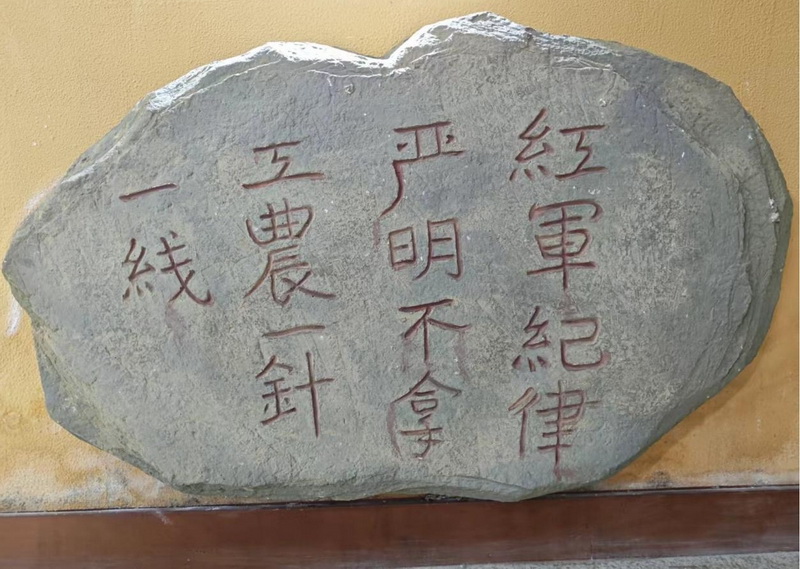 紅軍紀律
严明不拿
工農一針
一线